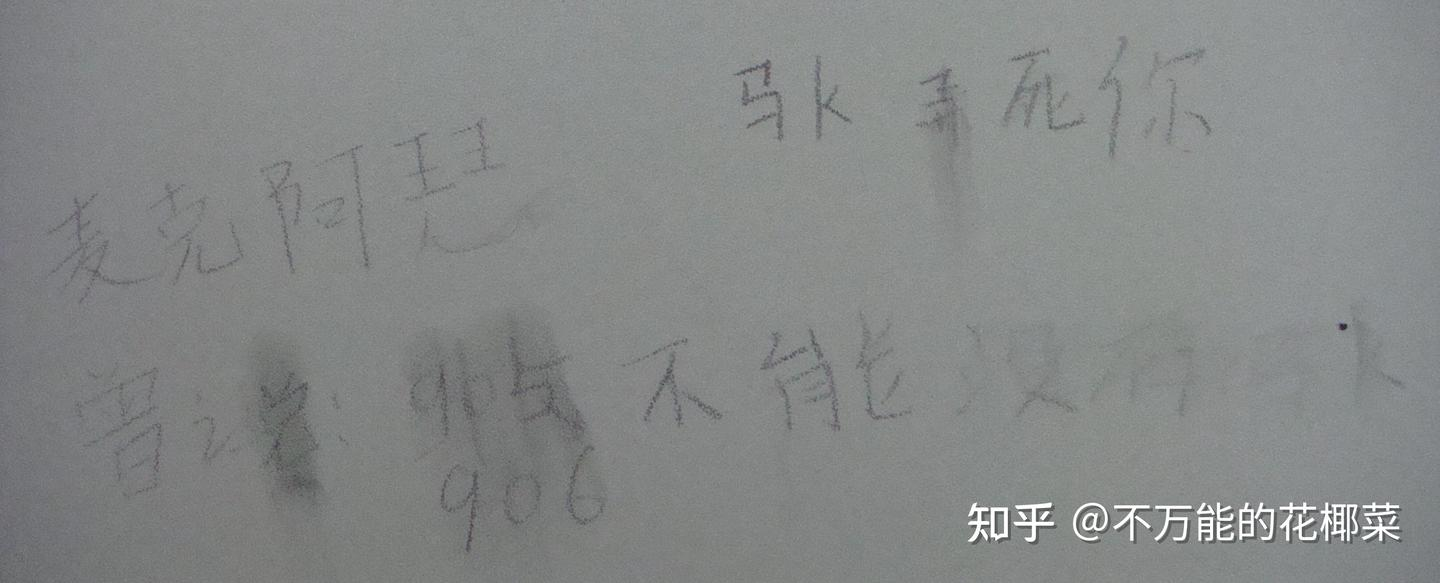 马k弄死你
麦克阿瑟
曾说
906不能没有马k
906
知乎 @不万能的花椰菜